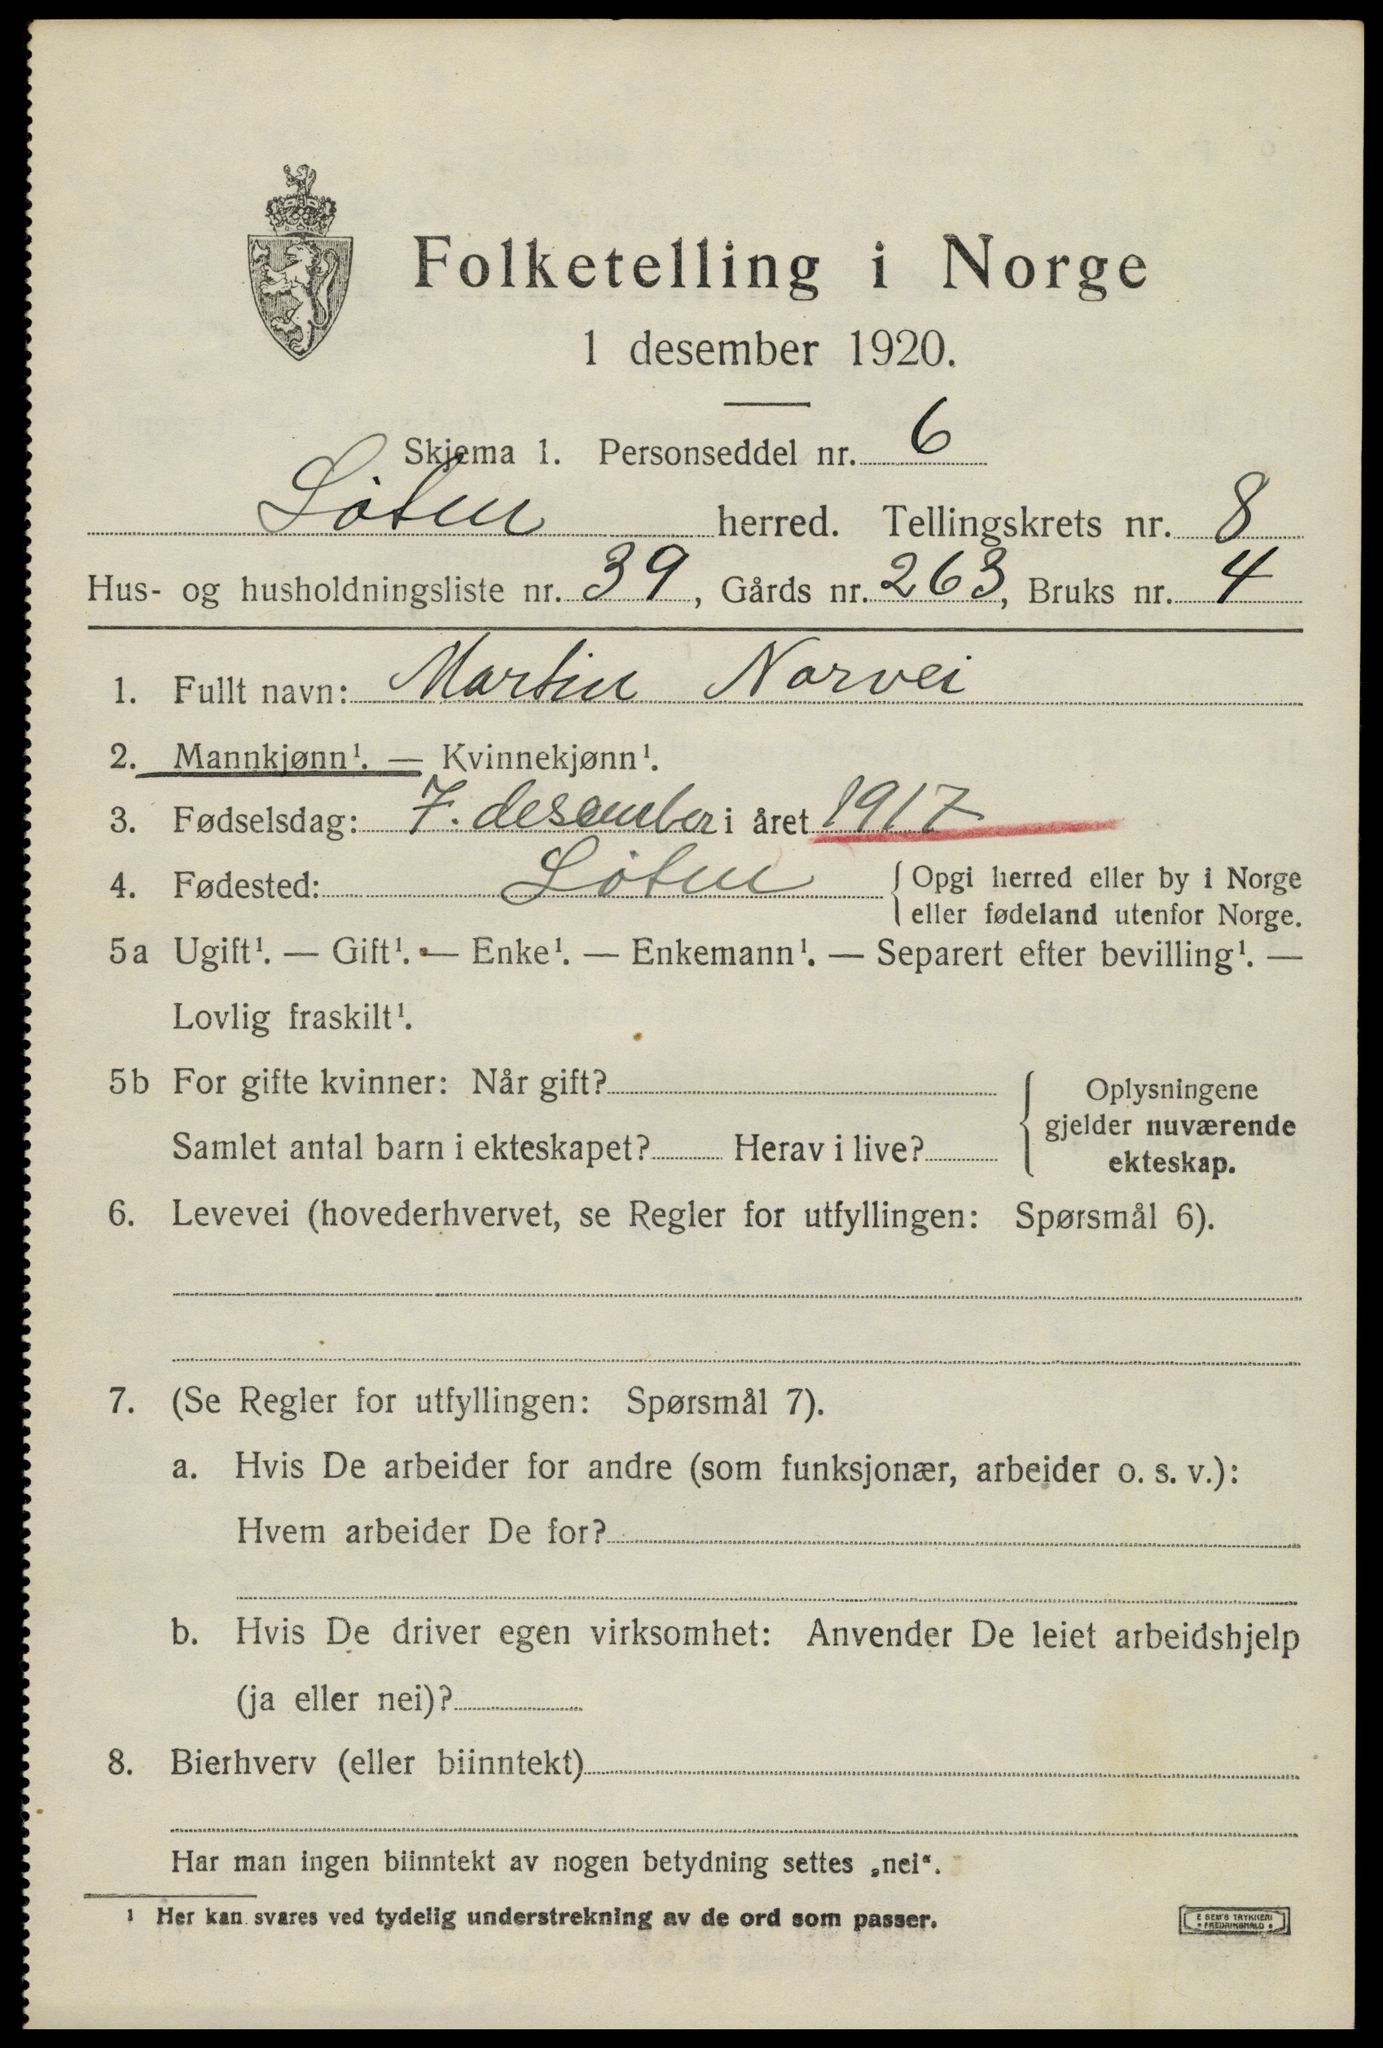 Folketelling i Norge
1 desember 1920.
Skjema 1. Personseddel nr. 6
Løten herred. Tellingskrets nr. 8
Hus- og husholdningsliste nr. 39, Gårds nr. 263, Bruks nr. 4
1. Fullt navn: Martin Norvei
2. Mannkjønn¹. — Kvinnekjønn¹.
3. Fødselsdag: 7. desember i året 1917
4. Fødested: Løten { Opgi herred eller by i Norge
eller fødeland utenfor Norge.
5a Ugift¹. — Gift¹. — Enke¹. — Enkemann¹. — Separert efter bevilling¹. —
Lovlig fraskilt¹.
5b For gifte kvinner: Når gift?
Samlet antal barn i ekteskapet? Herav i live?
Oplysningene
gjelder nuværende
ekteskap.
6. Levevei (hovederhvervet, se Regler for utfyllingen: Spørsmål 6).
7. (Se Regler for utfyllingen: Spørsmål 7).
a. Hvis De arbeider for andre (som funksjonær, arbeider o. s. v.):
Hvem arbeider De for?
b. Hvis De driver egen virksomhet: Anvender De leiet arbeidshjelp
(ja eller nei)?
8. Bierhverv (eller biinntekt)
Har man ingen biinntekt av nogen betydning settes „nei“.
¹ Her kan svares ved tydelig understrekning av de ord som passer.
E SEM'S TRYKKERI
• FREDRIKSHALD •